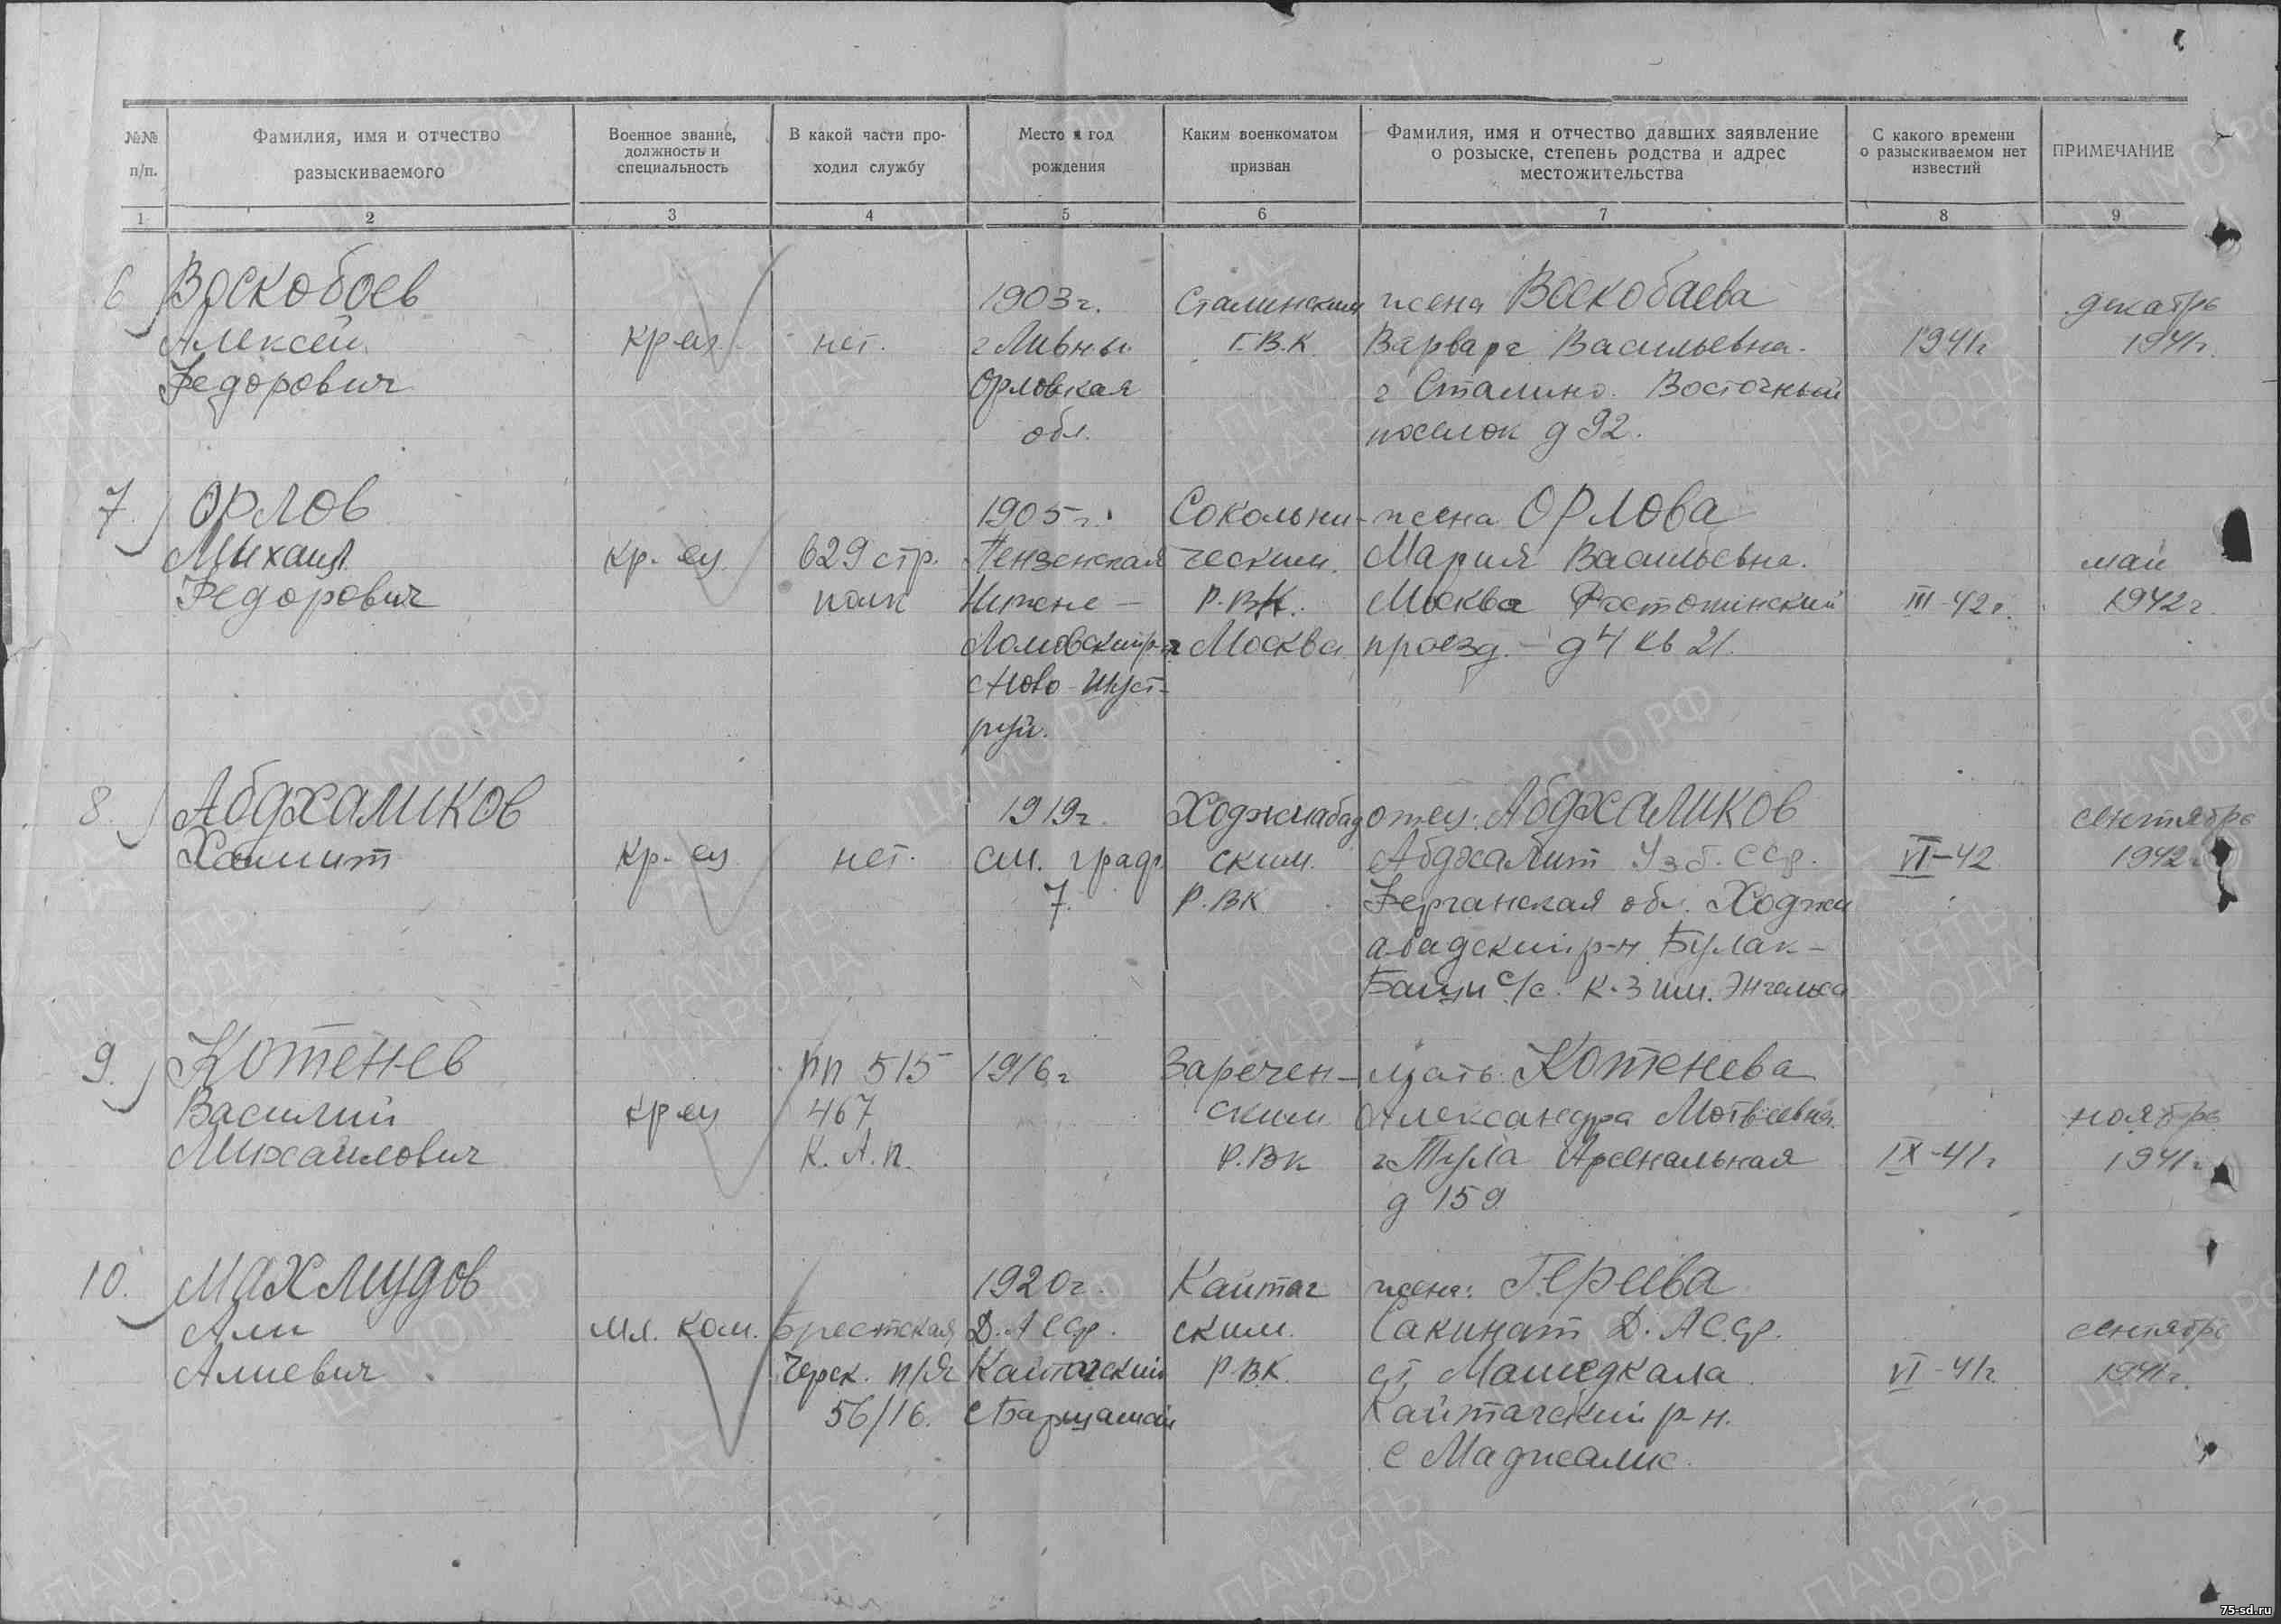 №№ п/п.
Фамилия, имя и отчество разыскиваемого
Военное звание, должность и специальность
В какой части проходил службу
Место и год рождения
Каким военкоматом призван
Фамилия, имя и отчество давших заявление о розыске, степень родства и адрес местожительства
С какого времени о разыскиваемом нет известий
ПРИМЕЧАНИЕ
1 2 3 4 5 6 7 8 9
6
Воскобоев
Алексей
Федорович
кр-ец
нет.
1903г.
г Ливны
Орловская
обл.
Сталинским
Г.В.К
жена Воскобаева
Варвара Васильевна.
г Сталино. Восточный
поселок д 92.
1941г
декабрь
1941г.
7.
Орлов
Михаил
Федорович
кр-ец.
629 стр.
полк
1905г.
Пензенская
Нижне-
Ломовский р-н
с Ново-Шуст-
руй.
Сокольни-
ческим.
Р.ВК.
г Москва
жена Орлова
Мария Васильевна.
Москва Ростокинский
проезд. - д 4 кв 21.
III-42г.
май
1942г.
8.
Абдхаликов
Хамит
кр-ец
нет.
1919г.
см. граф.
7.
Ходжиабад
ским.
Р.ВК
отец: Абдхаликов
Абджалит Узб. ССр.
Ферганская обл. Ходжи
абадский р-н Булак-
Баши с/с. к-з им. Энгельса
VI-42
сентябрь
1942г
9.
Котенев
Василий
Михайлович
кр ец
пп 515
467
К.А.П.
1916г
Заречен-
ским
Р.Вк
мать Котенева
Александра Мотвеевна.
г Тула Арсенальная
д 159
IX-41г
ноябрь
1941г.
10.
Махмудов
Али
Алиевич
мл. ком.
Брестская
Черск. п/я
56/16.
1920г.
Д.АССр.
Кайтагский
с Баршамай
Кайтаг
ским.
Р.ВК.
жена: Гереева
Сакинат Д.АССр.
ст Мамедкала
Кайтагский р-н.
с Маджалис.
VI-41г.
сентябрь
1941г.
ПАМЯТЬ НАРОДА
ЦАМО.РФ
75-sd.ru